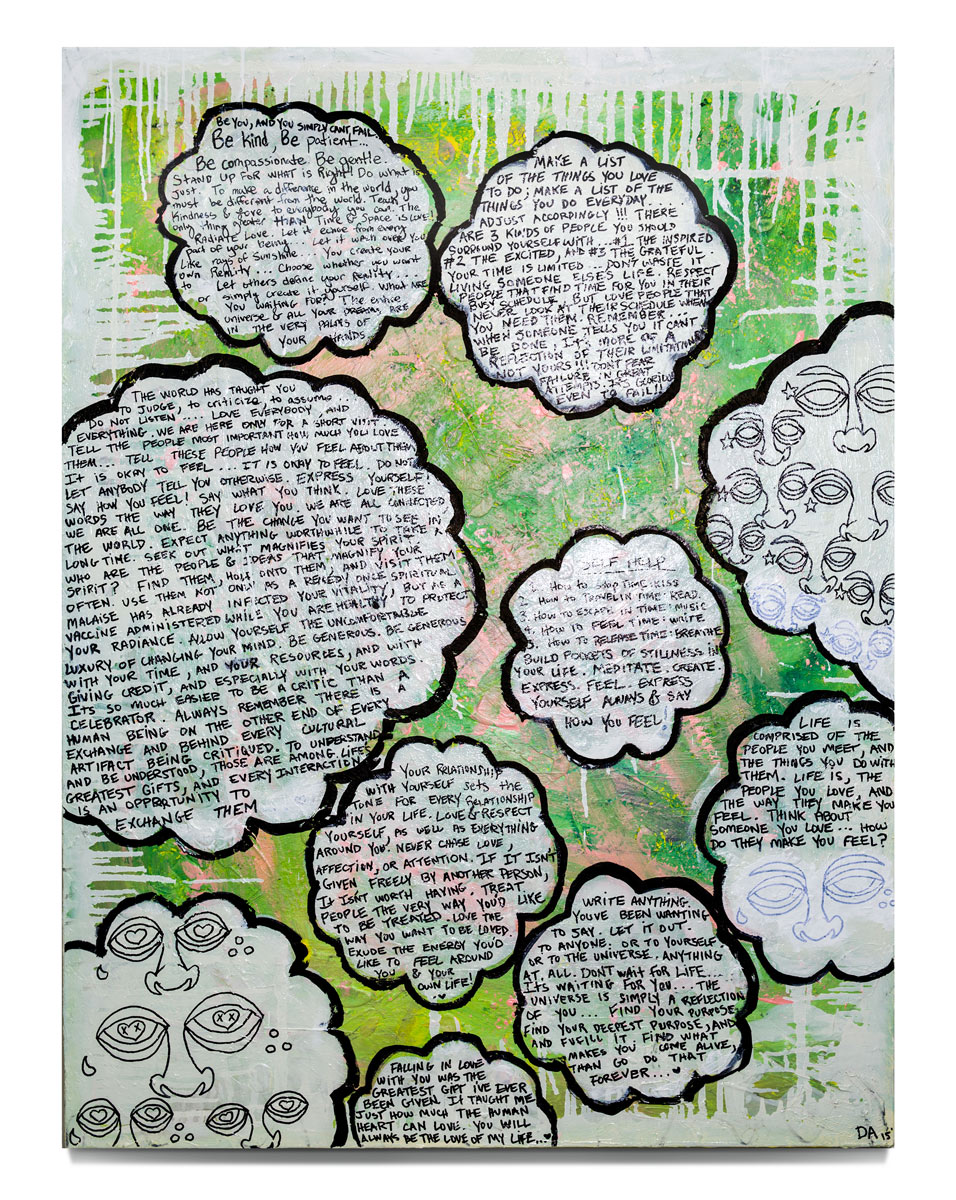 BE YOU, AND YOU SIMPLY CANT FAIL.
Be kind, Be patient...
Be compassionate. Be gentle.
STAND UP FOR WHAT is Right! Do what is
Just. To make a difference in the world, you
must be different from the world. Teach
Kindness & love to everybody you can. The
only thing greater THAN Time & Space is LOVE!
RADIATE LOVE. Let it echoe from every
part of your being... Let it wash over you
Like rays of Sunshine... You create your
own Reality... Choose whether you want
to Let others define your Reality..
or simply create it yourself. WHAT ARE
YOU WAITING FOR? The entire
universe & ALL YOUR DREAMS ARE
IN THE VERY PALMS OF
YOUR HANDS
MAKE A LIST
OF THE THINGS YOU LOVE
TO DO; MAKE A LIST OF THE
THINGS YOU DO EVERYDAY....
ADJUST ACCORDINGLY!!! THERE
ARE 3 KINDS OF PEOPLE YOU SHOULD
SURROUND YOURSELF WITH...#1 THE INSPIRED
#2 THE EXCITED, AND #3 THE GRATEFUL
YOUR TIME IS LIMITED... DONT WASTE IT
LIVING SOMEONE ELSES LIFE. RESPECT
PEOPLE THAT FIND TIME FOR YOU IN THEIR
BUSY SCHEDULE. BUT LOVE PEOPLE THAT
NEVER LOOK AT THEIR SCHEDULE WHEN
YOU NEED THEM. REMEMBER...
WHEN SOMEONE TELLS YOU IT CANT
BE DONE IT'S MORE OF A
REFLECTION OF THEIR LIMITATIONS
NOT YOURS!!! DONT FEAR
FAILURE IN GREAT
ATTEMPTS. IT'S GLORIOUS
EVEN TO FAIL!!
THE WORLD HAS TAUGHT YOU
TO JUDGE, to criticize to assume...
DO NOT LISTEN... LOVE EVERYBODY AND
EVERYTHING. WE ARE HERE ONLY FOR A SHORT VISIT
TELL THE PEOPLE MOST IMPORTANT HOW MUCH YOU LOVE
THEM... TELL THESE PEOPLE HOW YOU FEEL ABOUT THEM
IT IS OKAY TO FEEL... IT IS OKAY TO FEEL. DO NOT
LET ANYBODY TELL YOU OTHERWISE. EXPRESS YOURSELF
SAY HOW YOU FEEL! SAY WHAT YOU THINK. LOVE THESE
WORDS THE WAY THEY LOVE YOU. WE ARE ALL CONNECTED
WE ARE ALL ONE. BE THE CHANGE YOU WANT TO SEE IN
THE WORLD. EXPECT ANYTHING WORTHWHILE TO TAKE A
LONG TIME. SEEK OUT WHAT MAGNIFIES YOUR SPIRIT.
WHO ARE THE PEOPLE & IDEAS THAT MAGNIFY YOUR
SPIRIT? FIND THEM, HOLD ONTO THEM, AND VISIT THEM
OFTEN. USE THEM NOT ONLY AS A REMEDY ONCE SPIRITUAL
MALAISE HAS ALREADY INFECTED YOUR VITALITY, BUT AS A
VACCINE ADMINISTERED WHILE YOU ARE HEALTHY TO PROTECT
YOUR RADIANCE. ALLOW YOURSELF THE UNCOMFORTABLE
LUXURY OF CHANGING YOUR MIND. BE GENEROUS. BE GENEROUS
WITH YOUR TIME, AND YOUR RESOURCES, AND WITH
GIVING CREDIT, AND ESPECIALLY WITH YOUR WORDS.
ITS SO MUCH EASIER TO BE A CRITIC THAN A
CELEBRATOR. ALWAYS REMEMBER THERE IS A
HUMAN BEING ON THE OTHER END OF EVERY
EXCHANGE AND BEHIND EVERY CULTURAL
ARTIFACT BEING CRITIQUED. TO UNDERSTAND
AND BE UNDERSTOOD, THOSE ARE AMONG LIFES
GREATEST GIFTS, AND EVERY INTERACTION
IS AN OPPORTUNITY TO
EXCHANGE THEM
SELF HELP
1. HOW to STOP TIME: KISS
2. HOW to TRAVEL IN TIME: READ.
3. HOW TO ESCAPE IN TIME: MUSIC
4. HOW TO FEEL TIME: WRITE
HOW TO RELEASE TIME: BREATHE
BUILD POCKETS OF STILLNESS IN
YOUR LIFE. MEDITATE. CREATE.
EXPRESS. FEEL. EXPRESS
YOURSELF ALWAYS & SAY
HOW YOU FEEL!
LIFE IS
COMPRISED OF THE
PEOPLE YOU MEET, AND
THE THINGS YOU DO WITH
THEM. LIFE IS, THE
PEOPLE YOU LOVE, AND
THE WAY THEY MAKE YOU
FEEL. THINK ABOUT
SOMEONE YOU LOVE... HOW
DO THEY MAKE YOU FEEL?
YOUR RELATIONSHIP
WITH YOURSELF SETS the
TONE FOR EVERY RELATIONSHIP
IN YOUR LIFE. LOVE & RESPECT
YOURSELF, AS WELL AS EVERYTHING
AROUND YOU. NEVER CHASE LOVE,
AFFECTION, OR ATTENTION. IF IT ISN'T
GIVEN FREELY BY ANOTHER PERSON,
IT ISNT WORTH HAVING. TREAT
PEOPLE THE VERY WAY YOU'D LIKE
TO BE TREATED. LOVE THE
WAY YOU WANT TO BE LOVED.
EXUDE THE ENERGY YOU'D
LIKE TO FEEL AROUND
YOU & YOUR
OWN LIFE!
WRITE ANYTHING.
YOUVE BEEN WANTING
TO SAY. LET IT OUT.
TO ANYONE. OR TO YOURSELF
OR TO THE UNIVERSE. ANYTHING
AT ALL. DONT WAIT FOR LIFE...
ITS WAITING FOR YOU... THE
UNIVERSE IS SIMPLY A REFLECTION
OF YOU... FIND YOUR PURPOSE
FIND YOUR DEEPEST PURPOSE, AND
AND FULFILL IT. FIND WHAT
MAKES YOU COME ALIVE,
THAN GO DO THAT
FOREVER...
FALLING IN LOVE
WITH YOU WAS THE
GREATEST GIFT I'VE EVER
BEEN GIVEN. IT TAUGHT ME
JUST HOW MUCH THE HUMAN
HEART CAN LOVE. YOU WILL
ALWAYS BE THE LOVE OF MY LIFE...
DA 15